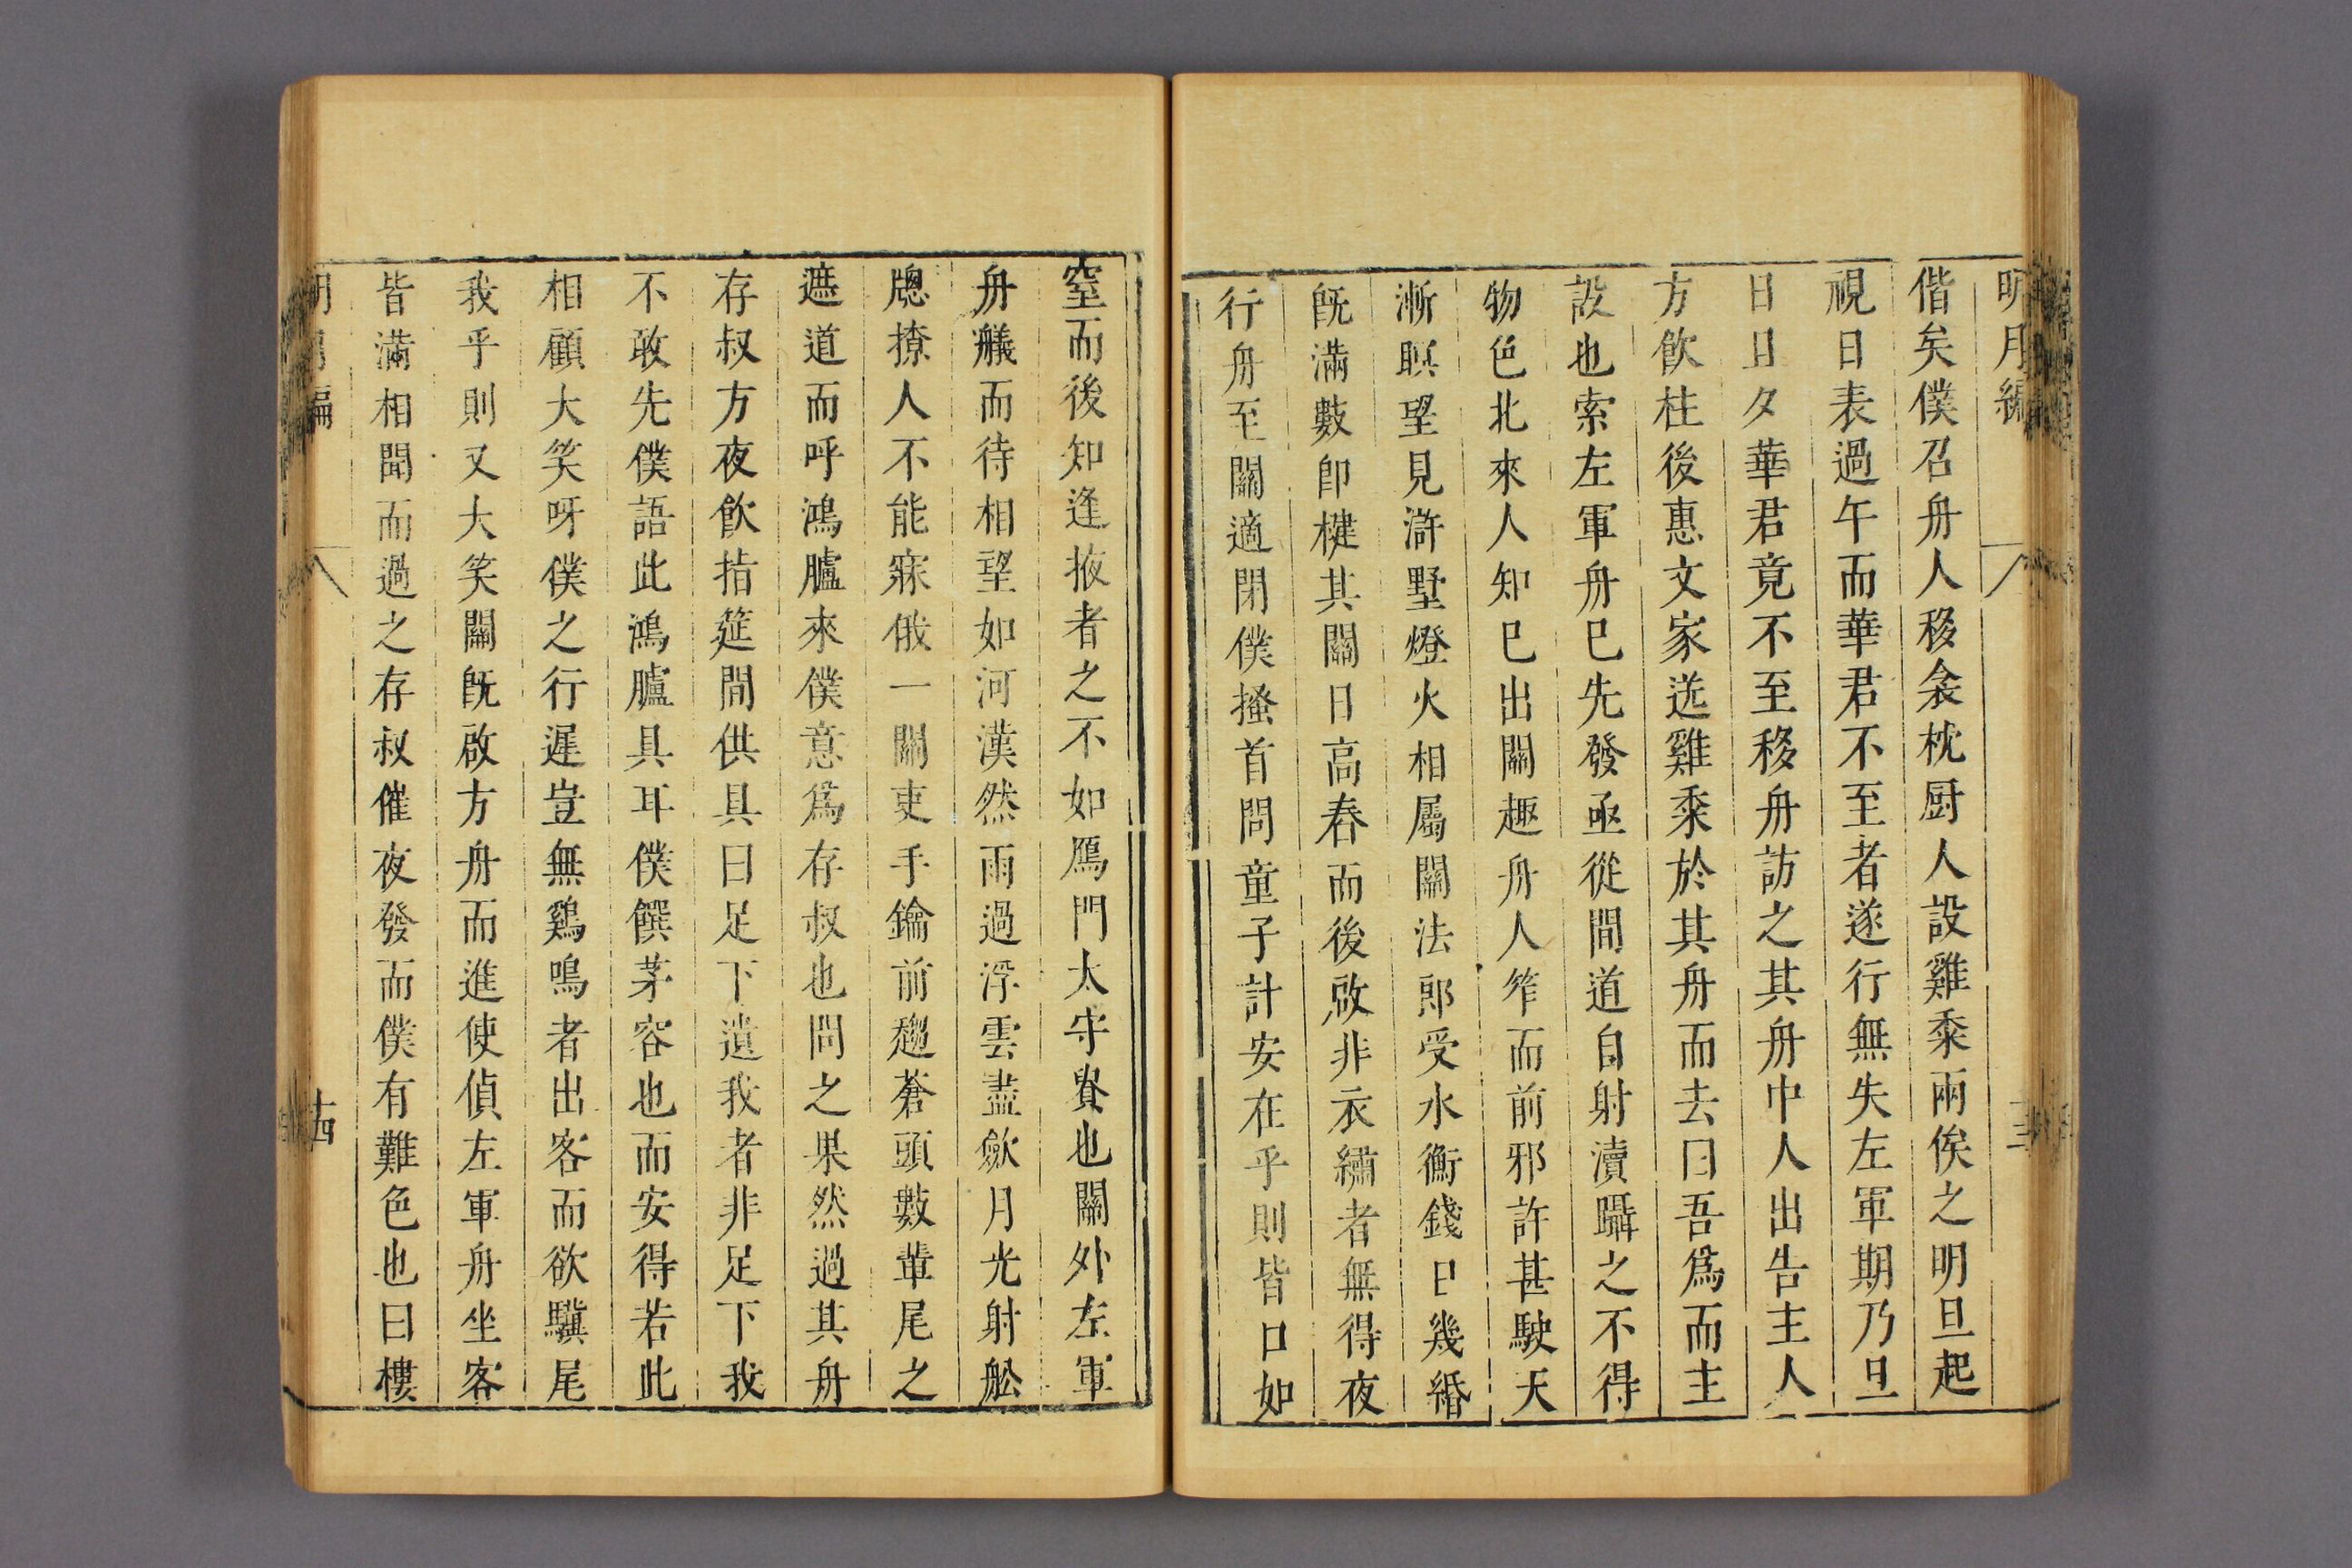 明月編
偕矣僕召舟人移衾枕厨人設雞黍兩俟之明旦起
視日表過午而華君不至者遂行無失左軍期乃旦
日且夕華君竟不至移舟訪之其舟中人出告主人
方飲柱後惠文家送雞黍於其舟而去曰吾爲而主
設也索左軍舟已先發亟從間道自射瀆躡之不得
物色北來人知已出關趣舟人筰而前邪許甚駛天
漸暝望見滸墅燈火相屬關法郎受水衡錢日幾緡
旣滿數卽楗其關日高舂而後啟非衣繡者無得夜
行舟至關適閉僕搔首問童子計安在乎則皆口如
窒而後知逢掖者之不如鴈門太守貴也關外左軍
舟艤而待相望如河漢然雨過浮雲盡歛月光射舩
牕撩人不能寐俄一關吏手鑰前趨蒼頭數輩尾之
遮道而呼鴻臚來僕意爲存叔也問之果然過其舟
存叔方夜飲指筵間供具曰足下遺我者非足下我
不敢先僕語此鴻臚具耳僕饌茅容也而安得若此
相顧大笑呀僕之行遲豈無鷄鳴者出客而欲驥尾
我乎則又大笑關旣啟方舟而進使偵左軍舟坐客
皆滿相聞而過之存叔催夜發而僕有難色也曰樓
十四